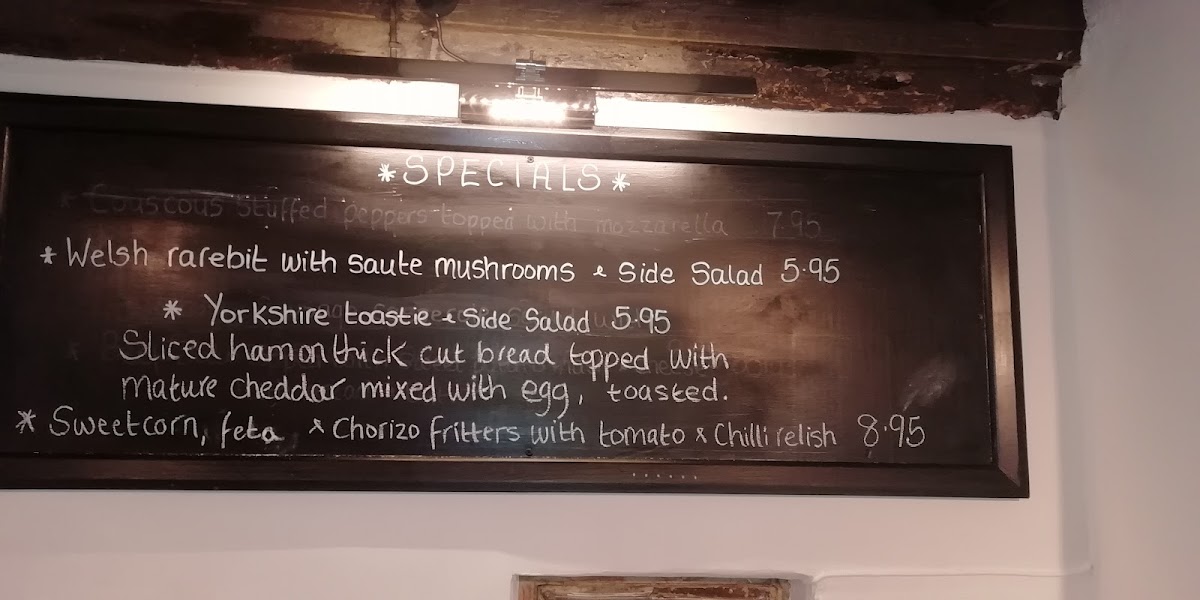 *SPECIALS*
* Couscous stuffed peppers topped with mozzarella 7.95
* Welsh rarebit with saute mushrooms & Side Salad 5.95
* Yorkshire toastie & Side Salad 5.95
Sliced ham on thick cut bread topped with
mature cheddar mixed with egg, toasted.
* Sweetcorn, feta & Chorizo fritters with tomato & Chilli relish 8.95